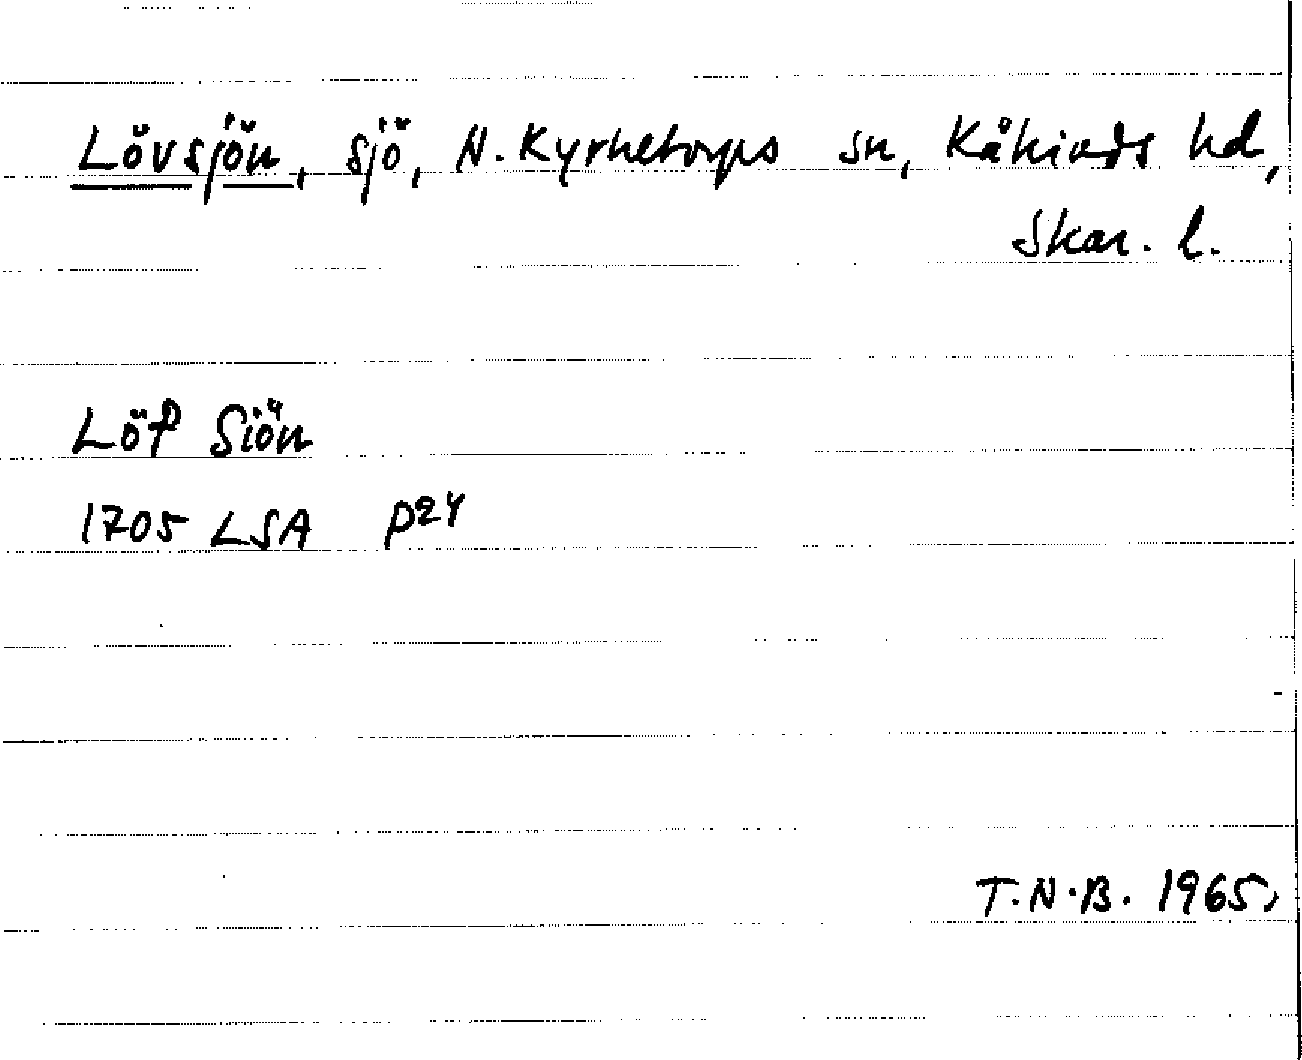 Lövsjön, sjö, N. Kyrketorps sn, Kåkinds hd,
Skar. l.
Löf Siön
1705 LSA P24
T.N.B. 1965